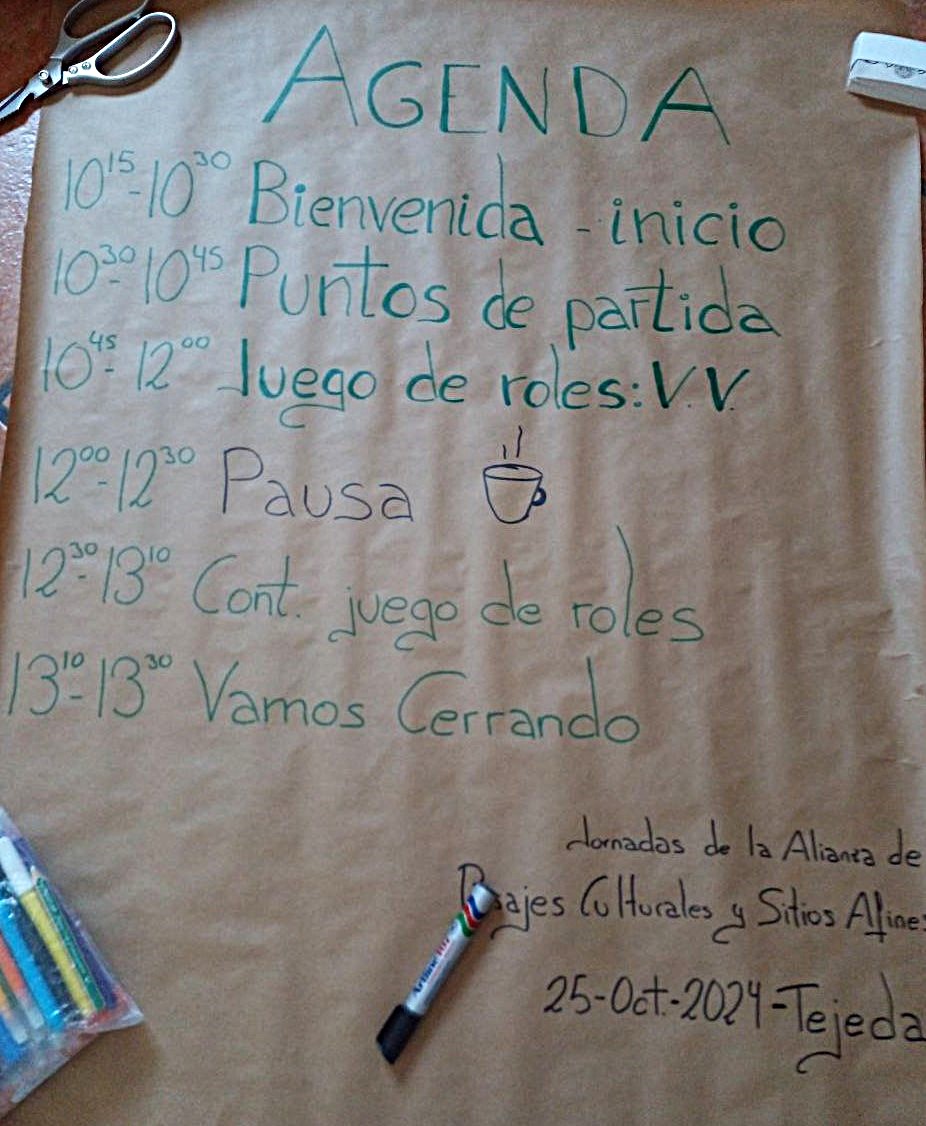 AGENDA
10¹⁵-10³⁰ Bienvenida - inicio
10³⁰-10⁴⁵ Puntos de partida
10⁴⁵-12⁰⁰ Juego de roles: V.V.
12⁰⁰-12³⁰ Pausa
12³⁰-13¹⁰ Cont. juego de roles
13¹⁰-13³⁰ Vamos Cerrando
Jornadas de la Alianza de
Paisajes Culturales y Sitios Afines
25-Oct.-2024-Tejeda
Artline